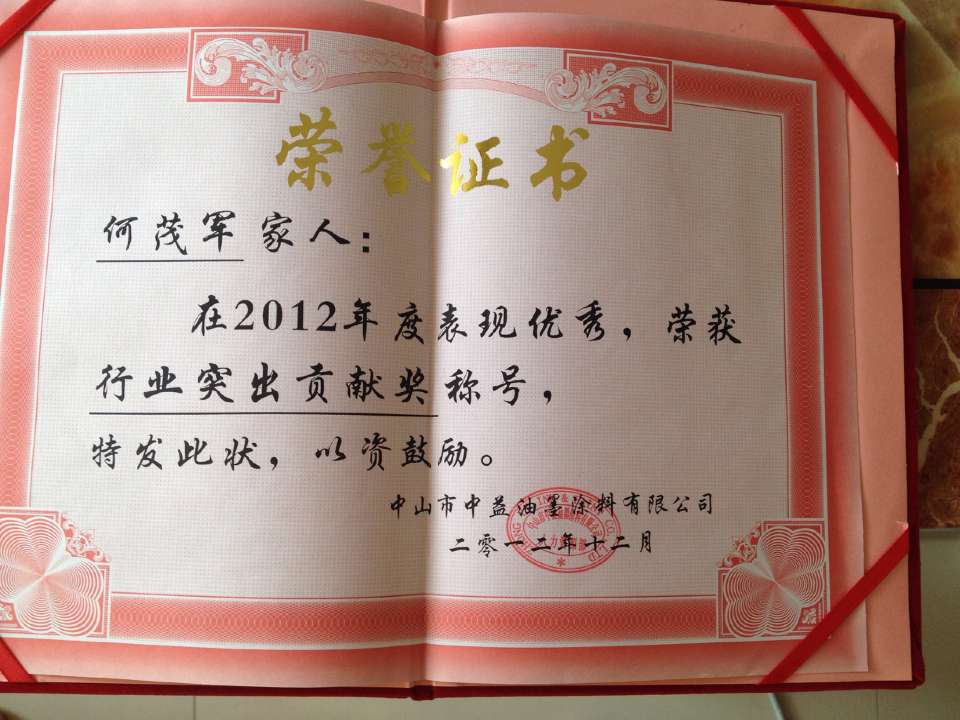 荣誉证书
何茂军家人：
在2012年度表现优秀，荣获
行业突出贡献奖称号，
特发此状，以资鼓励。
中山市中益油墨涂料有限公司
二零一二年十二月